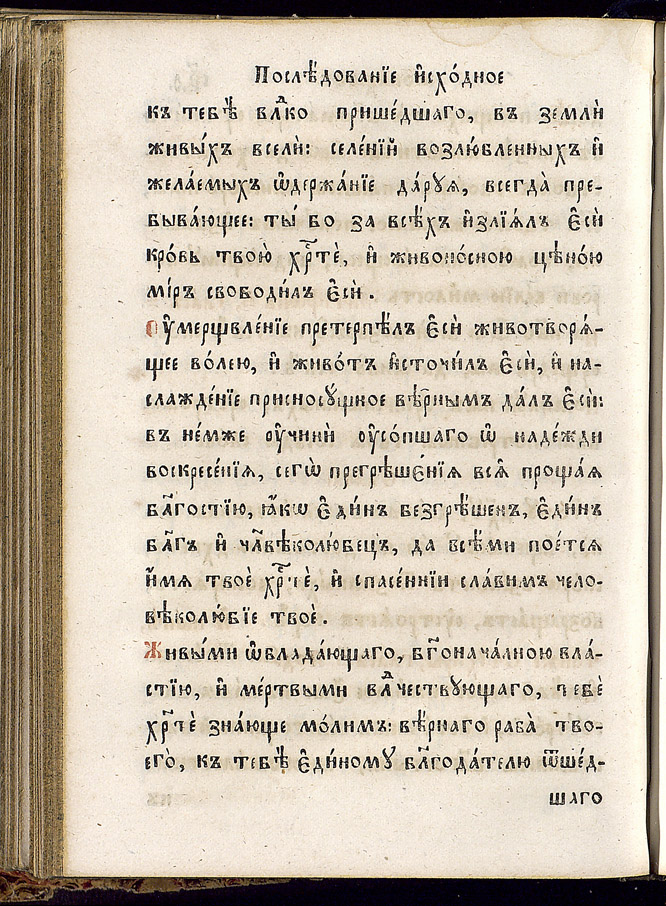 Послѣ́дованїе и҆схо́дное
къ тебѣ̀ влⷣко прише́дшаго, въ землѝ
живы́хъ вселѝ: селе́нїй возлю́бленныхъ и҆
жела́емыхъ ѡ҆держа́нїе да́рꙋѧ, всегда̀ пре-
быва́ющее: ты́ бо за всѣ́хъ и҆злїѧ́лъ є҆сѝ
кро́вь твою̀ хрⷭ҇тѐ, и҆ живоно́сною цѣно́ю
мі́ръ свободи́лъ є҆сѝ.
Оу҆мерщвле́нїе претерпѣ́лъ є҆сѝ животворѧ́-
щее во́лею, и҆ живо́тъ и҆сточи́лъ є҆сѝ, и҆ на-
слажде́нїе присносꙋ́щное вѣ̑рнымъ да́лъ є҆сѝ:
въ не́мже оу҆чинѝ оу҆со́пшаго ѡ҆ наде́жди
воскресе́нїѧ, сегѡ̀ прегрѣше́нїѧ всѧ̑ проща́ѧ
бл҃гостїю, ꙗ҆́кѡ є҆ди́нъ безгрѣ́шенъ, є҆ди́нъ
бл҃гъ и҆ чл҃вѣколю́бецъ, да всѣ́ми пое́тсѧ
и҆́мѧ твоѐ хрⷭ҇тѐ, и҆ спасе́ннїи сла́вимъ чело-
вѣколю́бїе твоѐ.
Живы́ми ѡ҆блада́ющаго, бг҃онача́лною вла́-
стїю, и҆ ме́ртвыми влⷣчествꙋ́ющаго, тебѐ
хрⷭ҇тѐ зна́юще мо́лимъ: вѣ́рнаго раба̀ тво-
его̀, къ тебѣ̀ є҆ди́номꙋ бл҃года́телю ѿше́д-
шаго